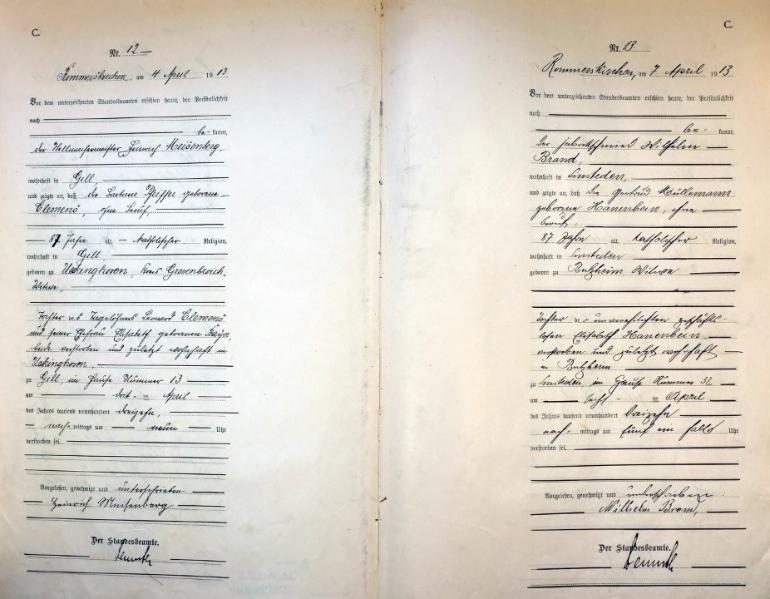 C.
Nr. 12
Rommerskirchen am 4 April 1913
Vor dem unterzeichneten Standesbeamten erschien heute, der Persönlichkeit
nach
be kannt,
der Heinrich Meisenberg,
wohnhaft in Gill
und zeigte an, daß die Pfeiffer geborene
Clemens, ohne Beruf,
87 Jahre alt, katholischer Religion,
wohnhaft in Gill
geboren zu Ueckinghoven, Kreis Grevenbroich,
Witwe,
Tochter des Tagelöhners Leonard Clemens
und seiner Ehefrau Elisabeth geborenen
beide verstorben und zuletzt wohnhaft in
Ueckinghoven.
zu Gill, im Hause Nummer 13
am April
des Jahres tausend neunhundert dreizehn,
nach mittags um neun Uhr
verstorben sei.
Vorgelesen, genehmigt und unterschrieben
Heinrich Meisenberg
Der Standesbeamte.
C.
Nr. 13
Rommerskirchen, am 7 April 1913
Vor dem unterzeichneten Standesbeamten erschien heute, der Persönlichkeit
nach
be kannt,
der Wilhelm
Brand,
wohnhaft in Sinsteden,
und zeigte an, daß die Gertrud Müllemann
geborene Hanenbein, ohne
Beruf,
87 Jahre alt, katholischer
wohnhaft in Sinsteden
geboren zu Butzheim Witwe
Tochter der unverehelichten
Elisabeth Hanenbein
verstorben und zuletzt wohnhaft
in Butzheim
zu Sinsteden, im Hause Nummer 51
am April
des Jahres tausend neunhundert dreizehn
nach mittags um fünf ein halb Uhr
verstorben sei.
Vorgelesen, genehmigt und unterschrieben.
Wilhelm Brand,
Der Standesbeamte.